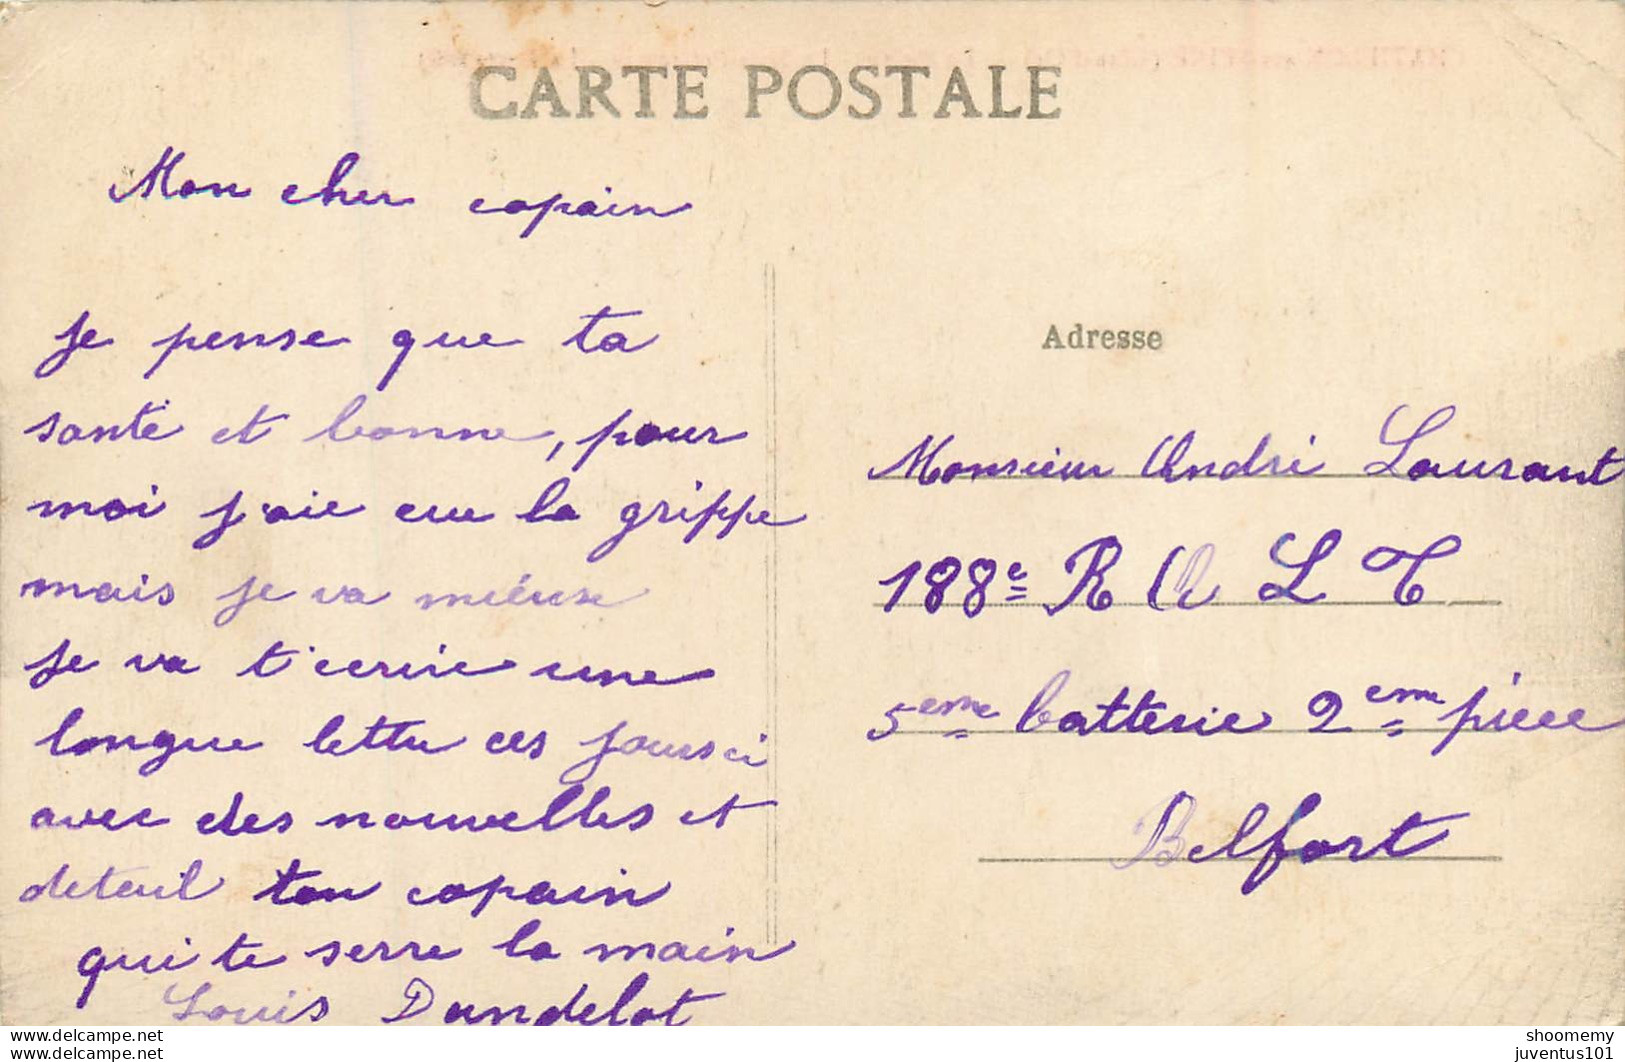 CARTE POSTALE
Mon cher copain
je pense que ta
santé et bonne, pour
moi j'aie eue la grippe
mais je va miéux
je va t'ecrire une
longue lettre ces jours ci
avec des nouvelles et
deteuil ton copain
qui te serre la main
Louis Dandelot
Adresse
Monsieur André Laurant
188e R A L T
5eme batterie 2eme pièce
Belfort
shoomemy
www.delcampe.net juventus101